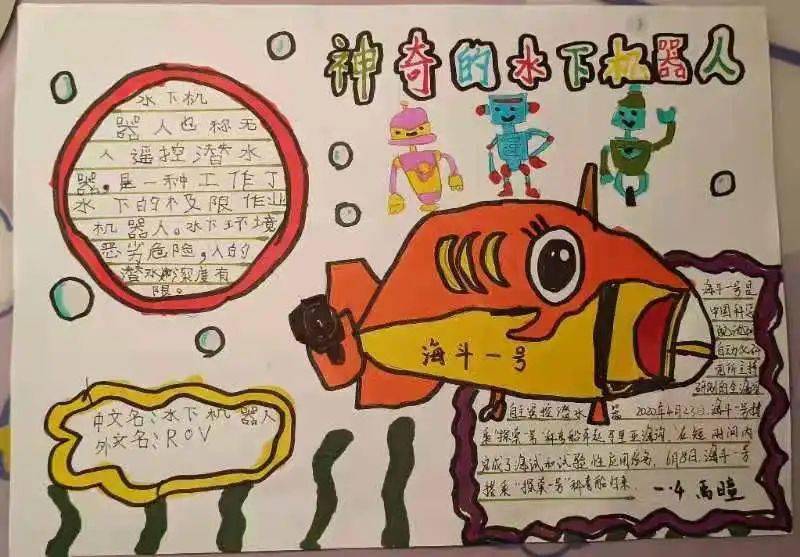 神奇的水下机器人
水下机
器人也称无
人遥控潜水
器,是一种工作于
水下的极限作业
机器人。水下环境
恶劣危险,人的
潜水深度有
限。
中文名:水下机器人
外文名:ROV
海斗一号
海斗一号是
中国科
自动化研
究所主持
研制的全海深
自主遥控潜水器 2020年4月23日,海斗一号搭
乘"探索一号"科考船奔赴马里亚纳海沟,在短时间内
完成了海试和试验性应用任务,6月8日,海斗一号
搭乘"探索一号"科考船归来。
一.4